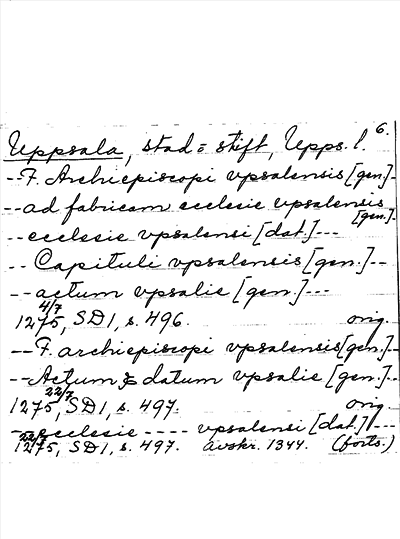 6.
Uppsala, stad o stift, Upps. l.
--F. Archiepiscopi vpsalensis [gen.]--
--ad fabricam ecclesie vpsalensis [gen.]--
--ecclesie vpsalensi [dat.]---
-- Capituli vpsalensis [gen.]--
--actum vpsalie [gen.]---
4/7
1275, SD1, s. 496. orig.
--F. archiepiscopi vpsalensis [gen.]--
--Actum & datum vpsalie [gen.]--
22/7
1275, SD1, s. 497. orig.
--ecclesie ---- vpsalensi [dat.]---
22/7
1275, SD1, s. 497. Avskr. 1344. (forts.)